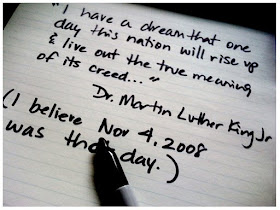 "I have a dream that one
day this nation will rise up
& live out the true meaning
of its creed..."
Dr. Martin Luther King Jr
(I believe Nov 4, 2008
was that day.)